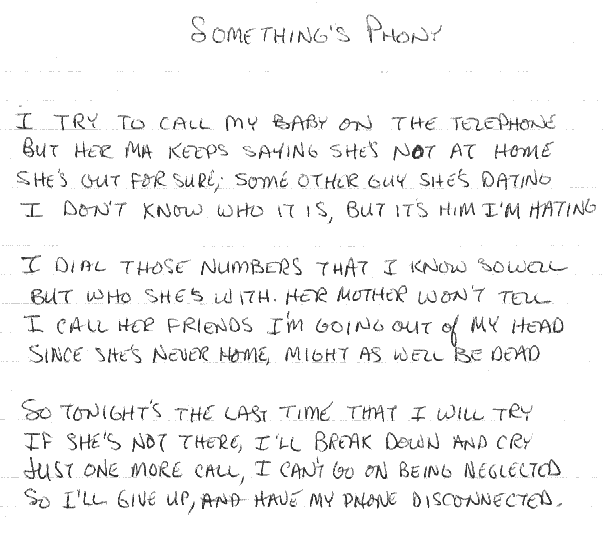 SOMETHING'S PHONY
I TRY TO CALL MY BABY ON THE TELEPHONE
BUT HER MA KEEPS SAYING SHE'S NOT AT HOME
SHE'S OUT FOR SURE; SOME OTHER GUY SHE'S DATING
I DON'T KNOW WHO IT IS, BUT IT'S HIM I'M HATING
I DIAL THOSE NUMBERS THAT I KNOW SO WELL
BUT WHO SHE'S WITH. HER MOTHER WON'T TELL
I CALL HER FRIENDS I'M GOING OUT of MY HEAD
SINCE SHE'S NEVER HOME, MIGHT AS WELL BE DEAD
SO TONIGHT'S THE LAST TIME THAT I WILL TRY
IF SHE'S NOT THERE, I'LL BREAK DOWN AND CRY
JUST ONE MORE CALL, I CAN'T GO ON BEING NEGLECTED
SO I'LL GIVE UP, AND HAVE MY PHONE DISCONNECTED.